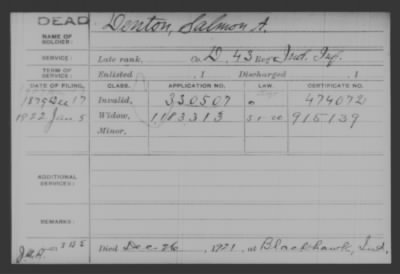 DEAD
NAME OF SOLDIER: Denton, Salmon A.
SERVICE: Late rank, Co. D, 43 Reg't Ind. Inf.
TERM OF SERVICE: Enlisted , 1 Discharged , 1
DATE OF FILING. CLASS. APPLICATION NO. LAW. CERTIFICATE NO.
1879 Dec 17 Invalid, 330507 474072
1922 Jan 5 Widow, 1183313 915139
Minor,
ADDITIONAL SERVICES:
REMARKS:
Died Dec. 26, 1921, at Blackhawk, Ind.